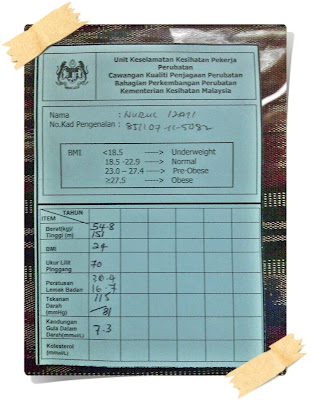 Unit Keselamatan Kesihatan Pekerja
Perubatan
Cawangan Kualiti Penjagaan Perubatan
Bahagian Perkembangan Perubatan
Kementerian Kesihatan Malaysia
Nama : NURUL IZATI
No.Kad Pengenalan : 851107-11-5082
BMI <18.5 -----> Underweight
18.5 -22.9 -----> Normal
23.0 – 27.4 -----> Pre-Obese
≥27.5 -----> Obese
TAHUN
ITEM
Berat(kg)/ 54.8
Tinggi (m) 151
BMI 24
Ukur Lilit 70
Pinggang
Peratusan 28.4
Lemak Badan 16.7
Tekanan 115
Darah
(mmHg) /81
Kandungan
Gula Dalam 7.3
Darah(mmol/L)
Kolesterol
(mmol/L)